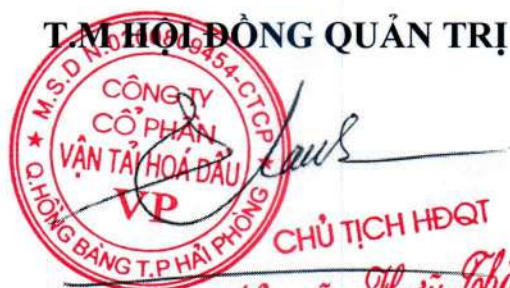 T.M HỘI ĐỒNG QUẢN TRỊ
CÔNG TY
CỔ PHẦN
VẬN TẢI HOÁ DẦU
VP
Q.HỒNG BÀNG T.P HẢI PHÒNG
CHỦ TỊCH HĐQT